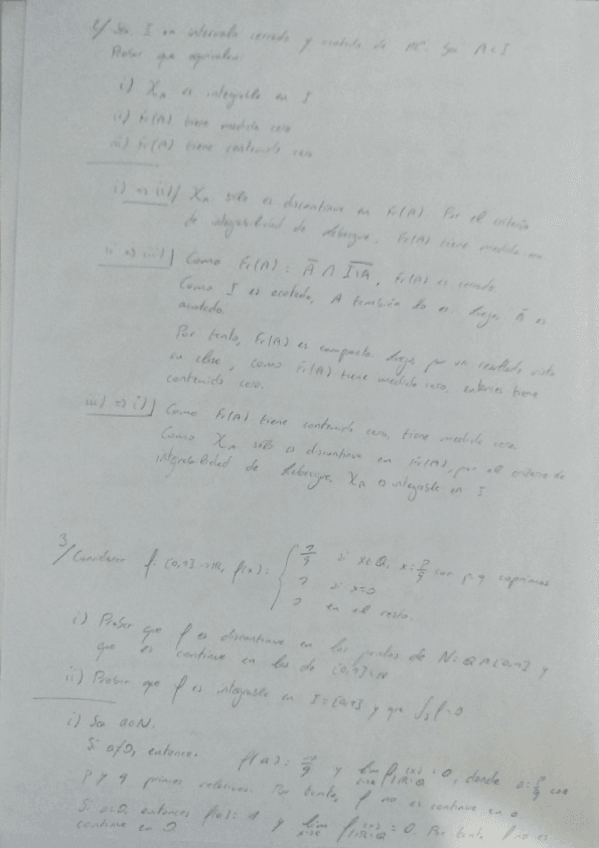 2/ Sea I un intervalo cerrado y acotado de ℝⁿ. Sea A ⊂ I
Probar que equivalen:
i) χ_A es integrable en I
ii) Fr(A) tiene medida cero
iii) Fr(A) tiene contenido cero
i) ⇒ ii)/ χ_A sólo es discontinua en Fr(A). Por el criterio
de integrabilidad de Lebesgue, Fr(A) tiene medida cero.
ii ⇒ iii)/ Como Fr(A) = Ā ∩ \overline{I\A}, Fr(A) es cerrado
Como I es acotado, A también lo es. Luego Ā es
acotado.
Por tanto, Fr(A) es compacto. Luego por un resultado visto
en clase, como Fr(A) tiene medida cero, entonces tiene
contenido cero.
iii) ⇒ i)/ Como Fr(A) tiene contenido cero, tiene medida cero.
Como χ_A sólo es discontinua en Fr(A), por el criterio de
integrabilidad de Lebesgue, χ_A es integrable en I
3/ Considerar f: [0,1] → ℝ, f(x) = { 1/q si x ∈ Q, x = p/q con p, q coprimos
1 si x=0
0 en el resto.
i) Probar que f es discontinua en los puntos de N = Q ∩ [0,1] y
que es continua en los de [0,1] \ N
ii) Probar que f es integrable en I = [0,1] y que ∫_I f = 0
i) Sea a ∈ N.
Si a ≠ 0, entonces f(a) = 1/q y lim f(x) = 0, donde a = p/q con
p y q primos relativos. Por tanto, f no es continua en a
Si a=0, entonces f(0) = 1 y lim f(x) = 0. Por tanto f no es
continua en 0